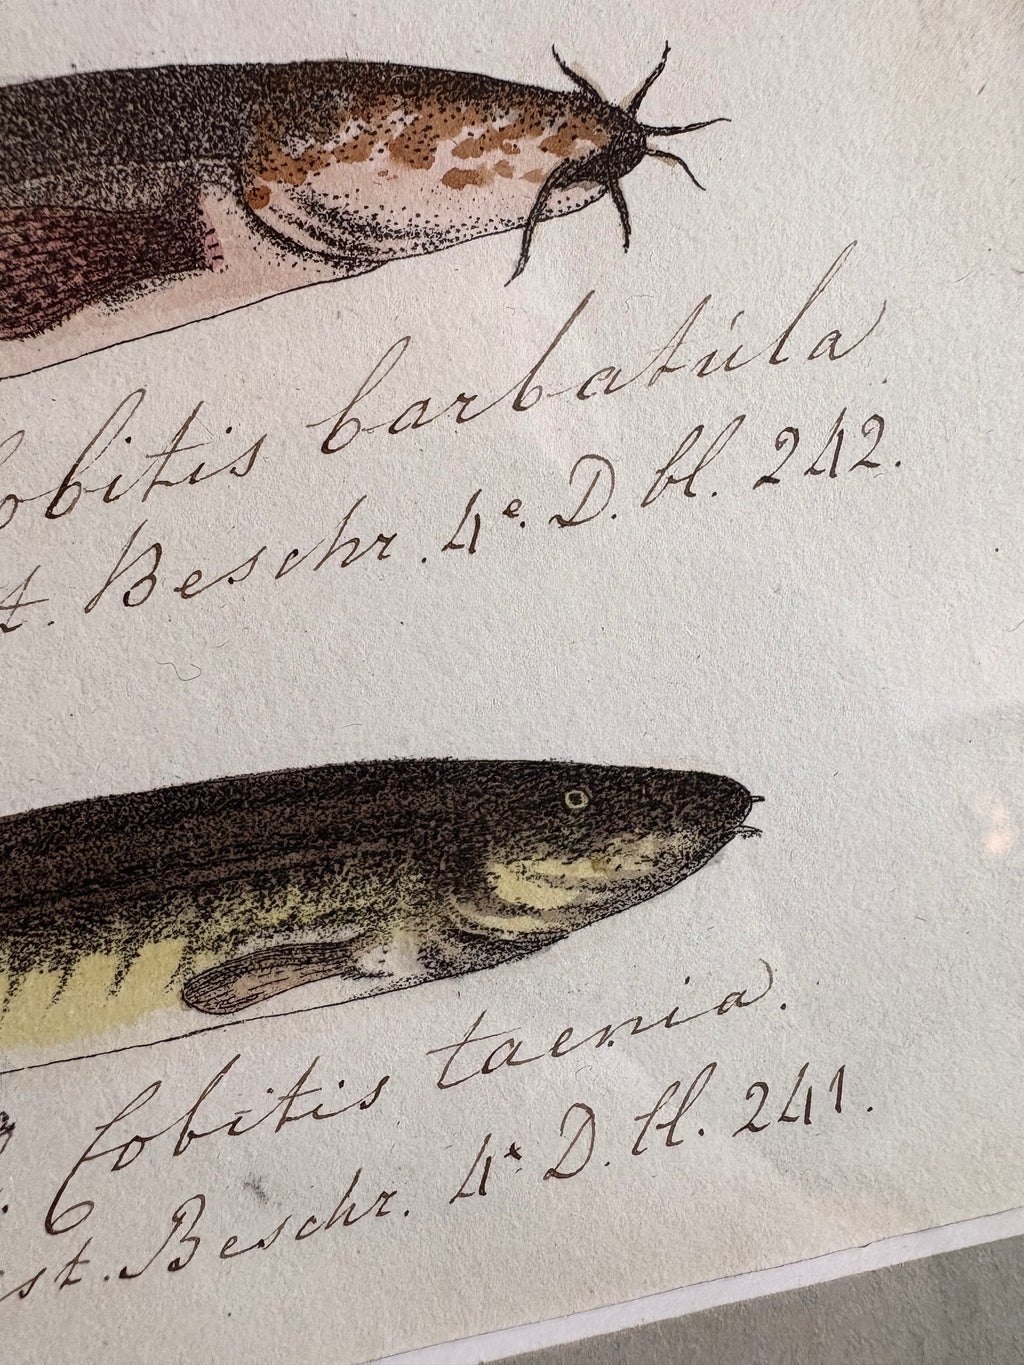 obitis barbatula
t. Beschr. 4e. D. bl. 242.
Cobitis taenia.
st. Beschr. 4e. D. bl. 241.